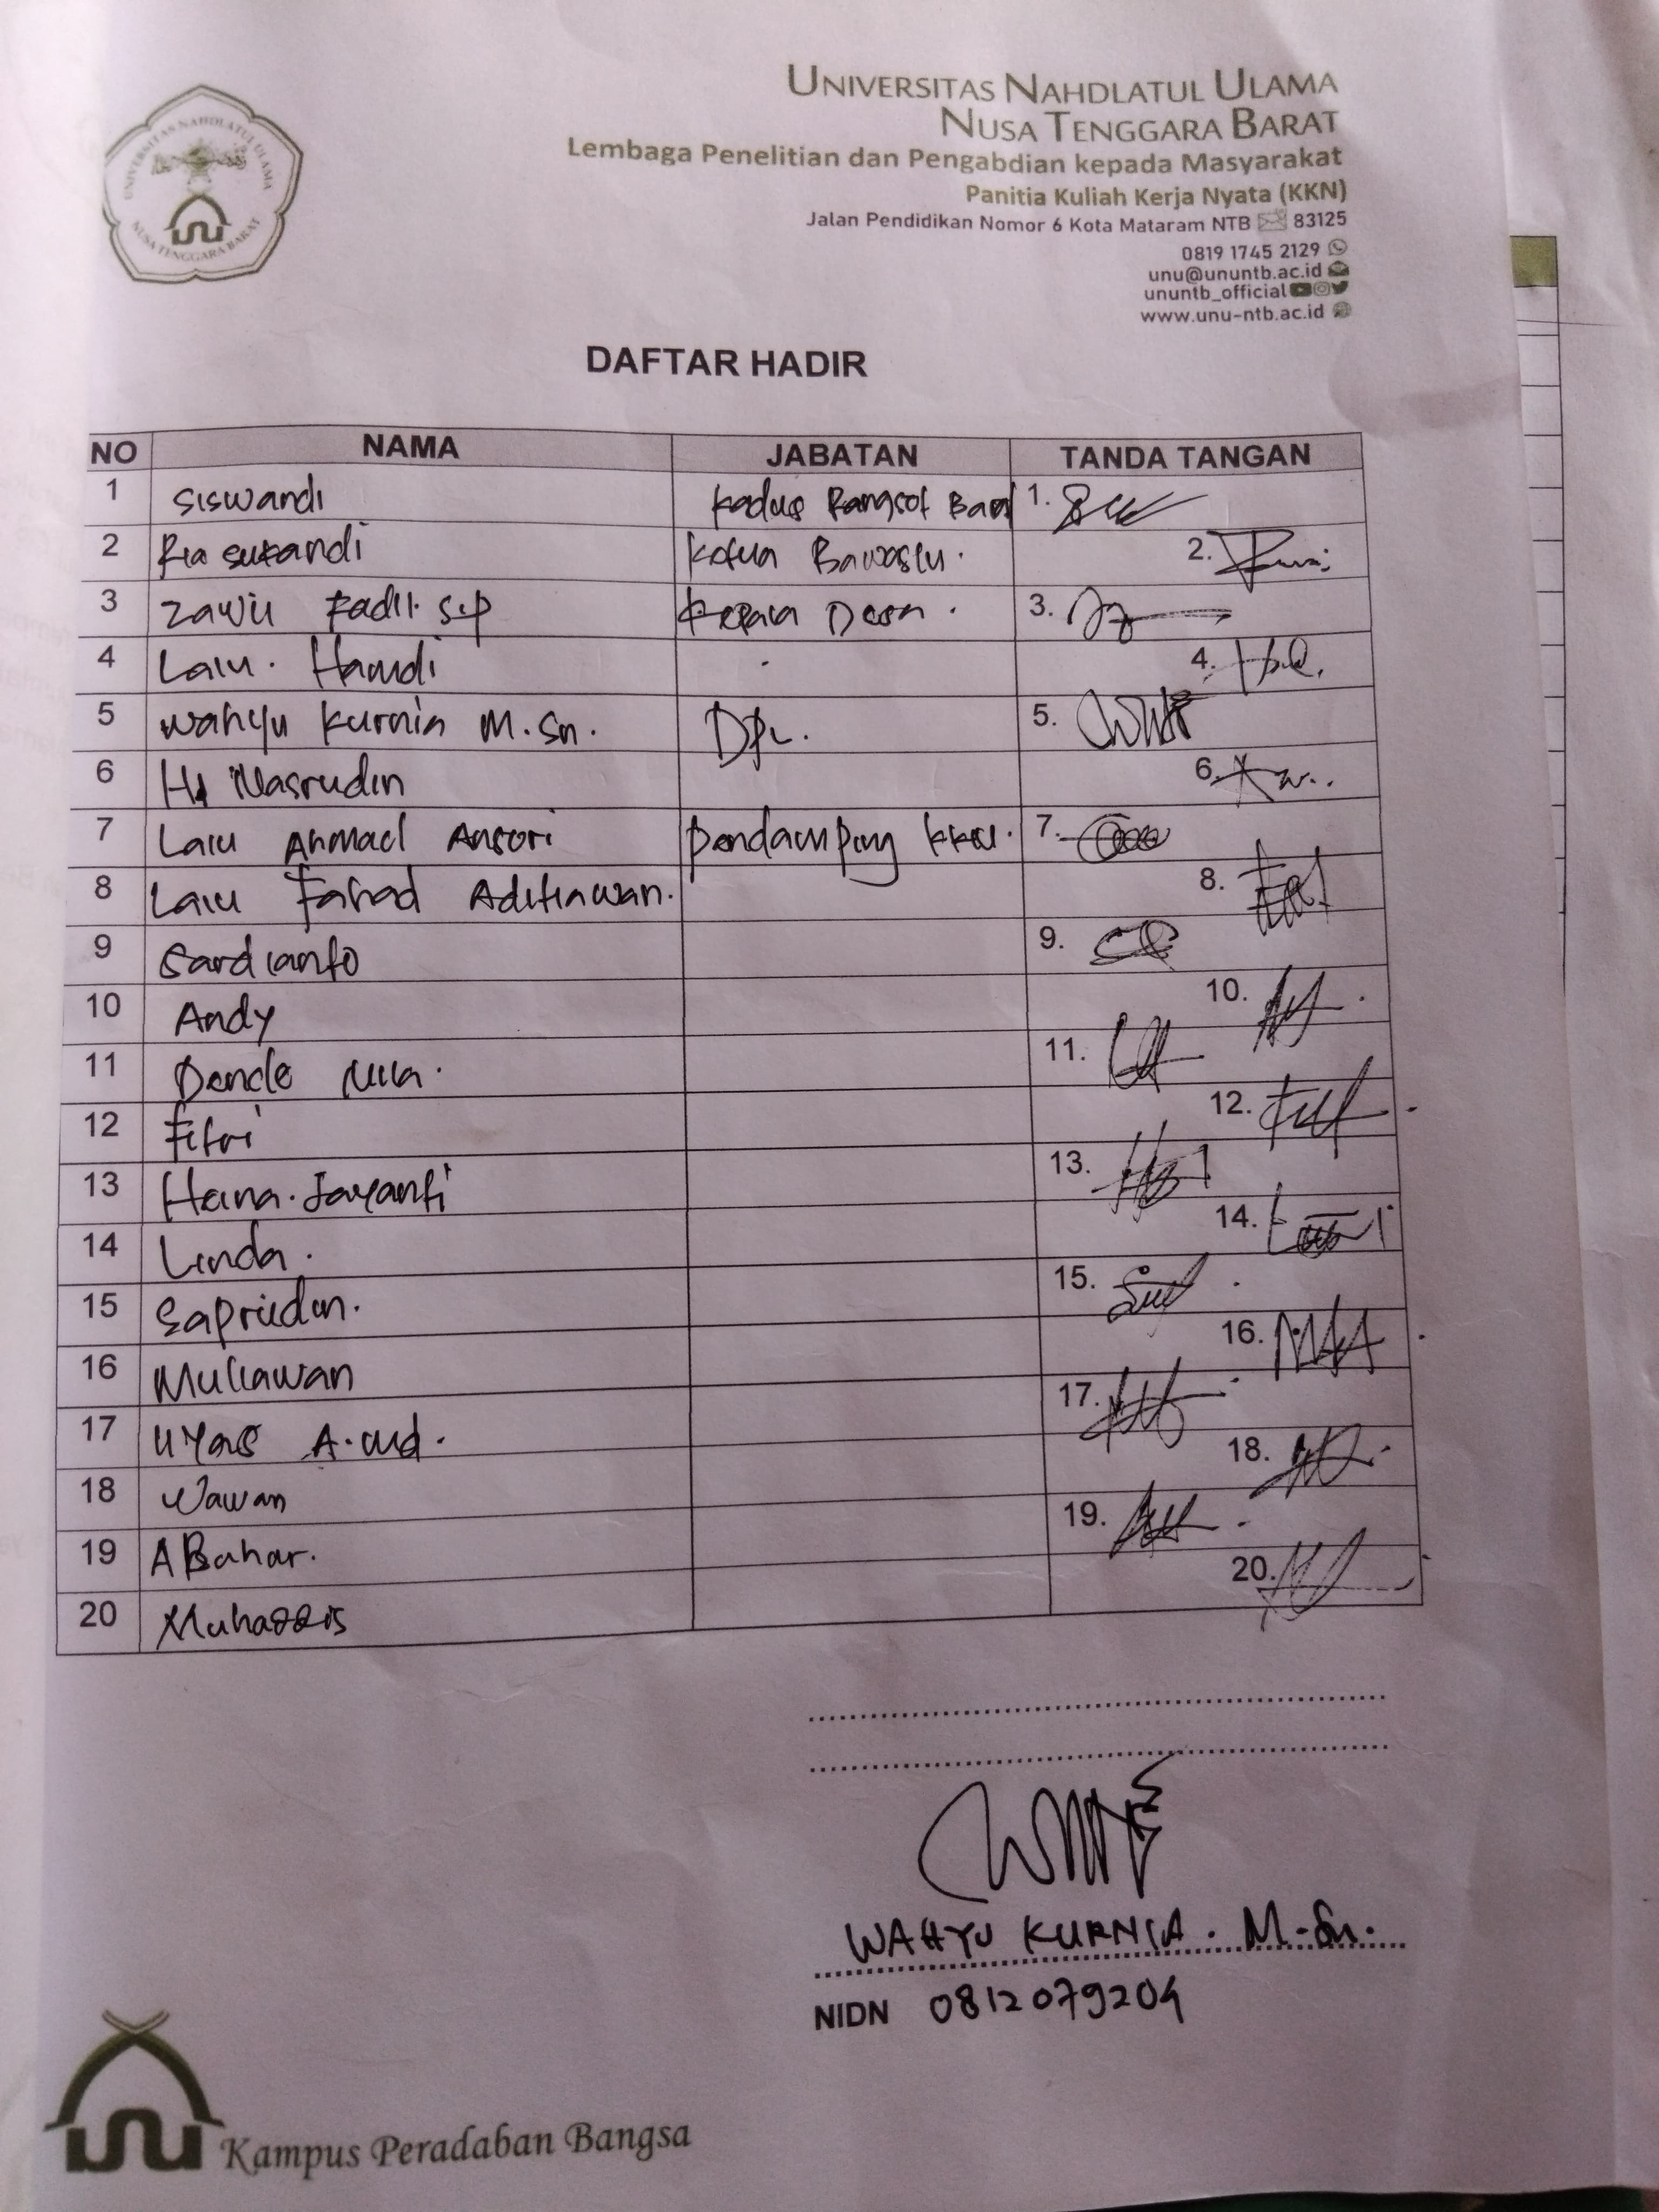 UNIVERSITAS NAHDLATUL ULAMA
NUSA TENGGARA BARAT
Lembaga Penelitian dan Pengabdian kepada Masyarakat
Panitia Kuliah Kerja Nyata (KKN)
Jalan Pendidikan Nomor 6 Kota Mataram NTB 83125
0819 1745 2129
unu@ununtb.ac.id
ununtb_official
www.unu-ntb.ac.id
UNIVERSITAS NAHDLATUL ULAMA
NUSA TENGGARA BARAT
DAFTAR HADIR
NO NAMA JABATAN TANDA TANGAN
1 Siswandi Kadus Rangsot 1.
2 Ria Sukandi Ketua Bawaslu. 2.
3 Zawil Fadli. S.ip Kepala Desa. 3.
4 Lalu. Hamdi 4.
5 Wahyu Kurnia M.Sn. DPL. 5.
6 H. Nasrudin 6.
7 Lalu Ahmad Ansori Pendamping KKN. 7.
8 Lalu Farhad Aditiawan. 8.
9 Sardianto 9.
10 Andy 10.
11 Dende 11.
12 Fitri 12.
13 Jayanti 13.
14 Linda. 14.
15 Saprudin. 15.
16 Muliawan 16.
17 A.Md. 17.
18 Wawan 18.
19 A Bahar. 19.
20 20.
WAHYU KURNIA. M.Sn.
NIDN 0812079204
Kampus Peradaban Bangsa